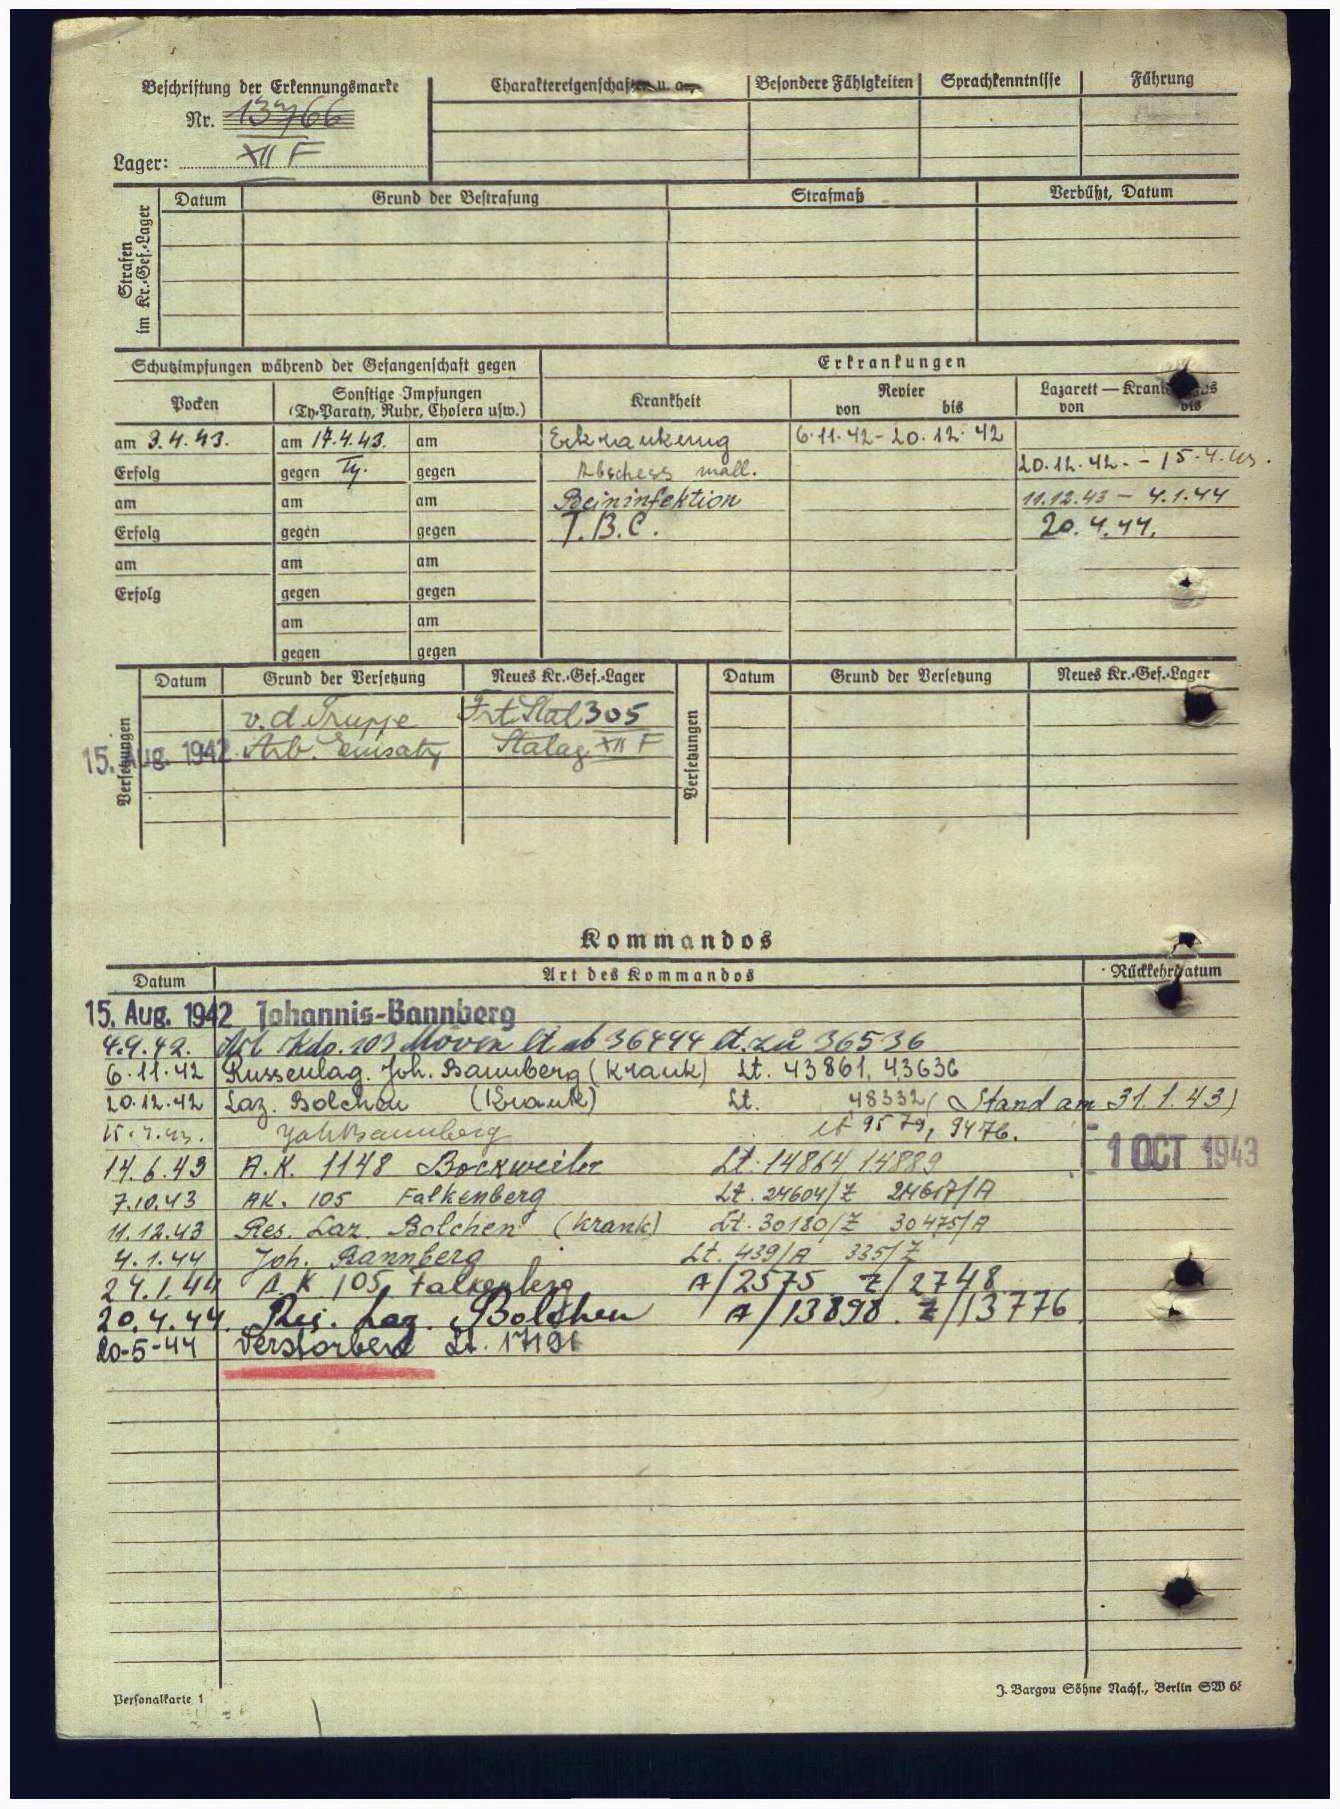 Beschriftung der Erkennungsmarke
Nr. 13766
Lager: XII F
Charaktereigenschaften u. a.
Besondere Fähigkeiten
Sprachkenntnisse
Führung
Strafen im Kr.-Gef.-Lager
Datum Grund der Bestrafung Strafmaß Verbüßt, Datum
Schutzimpfungen während der Gefangenschaft gegen
Erkrankungen
Pocken
Sonstige Impfungen
(Ty-Paraty, Ruhr, Cholera usw.)
Krankheit
Revier
von bis
Lazarett — Krankenhaus
von bis
am 3.4.43. am 17.4.43. am Erkrankung 6.11.42 - 20.12.42
Erfolg gegen Ty. gegen Abschess mall. 20.12.42. - 15.4.43.
am am am Beininfektion 11.12.43 - 4.1.44
Erfolg gegen gegen T.B.C. 20.4.44.
am am am
Erfolg gegen gegen
am am
gegen gegen
Versetzungen
Datum Grund der Versetzung Neues Kr.-Gef.-Lager
Versetzungen
Datum Grund der Versetzung Neues Kr.-Gef.-Lager
v. d. Truppe Frt Stal 305
15. Aug. 1942 Arb. Einsatz Stalag XII F
Kommandos
Datum Art des Kommandos Rückkehrdatum
15. Aug. 1942 Johannis-Bannberg
4.9.42. Arb Kdo. 103 Möven lt ab 36494 lt. zu 36536
6.11.42 Russenlag. Joh. Bannberg (Krank) Lt. 43861, 43636
20.12.42 Laz. Bolchen (Krank) Lt. 48332 (Stand am 31.1.43)
15.4.43. Joh Bannberg lt 9579, 9476.
1 OCT 1943
14.6.43 A.K. 1148 Bockweiler Lt. 14864 14889
7.10.43 AK. 105 Falkenberg Lt. 24604/Z 24617/A
11.12.43 Res. Laz. Bolchen (Krank) Lt. 30180/Z 30475/A
4.1.44 Joh. Bannberg Lt. 439/A 335/Z
24.1.44 A.K 105. Falkenberg A/2575 Z/2748
20.4.44. Res. Laz. Bolchen A/13898. Z/13776
20-5-44 Verstorben Lt.
Personalkarte 1
J. Bargou Söhne Nachf., Berlin SW 68